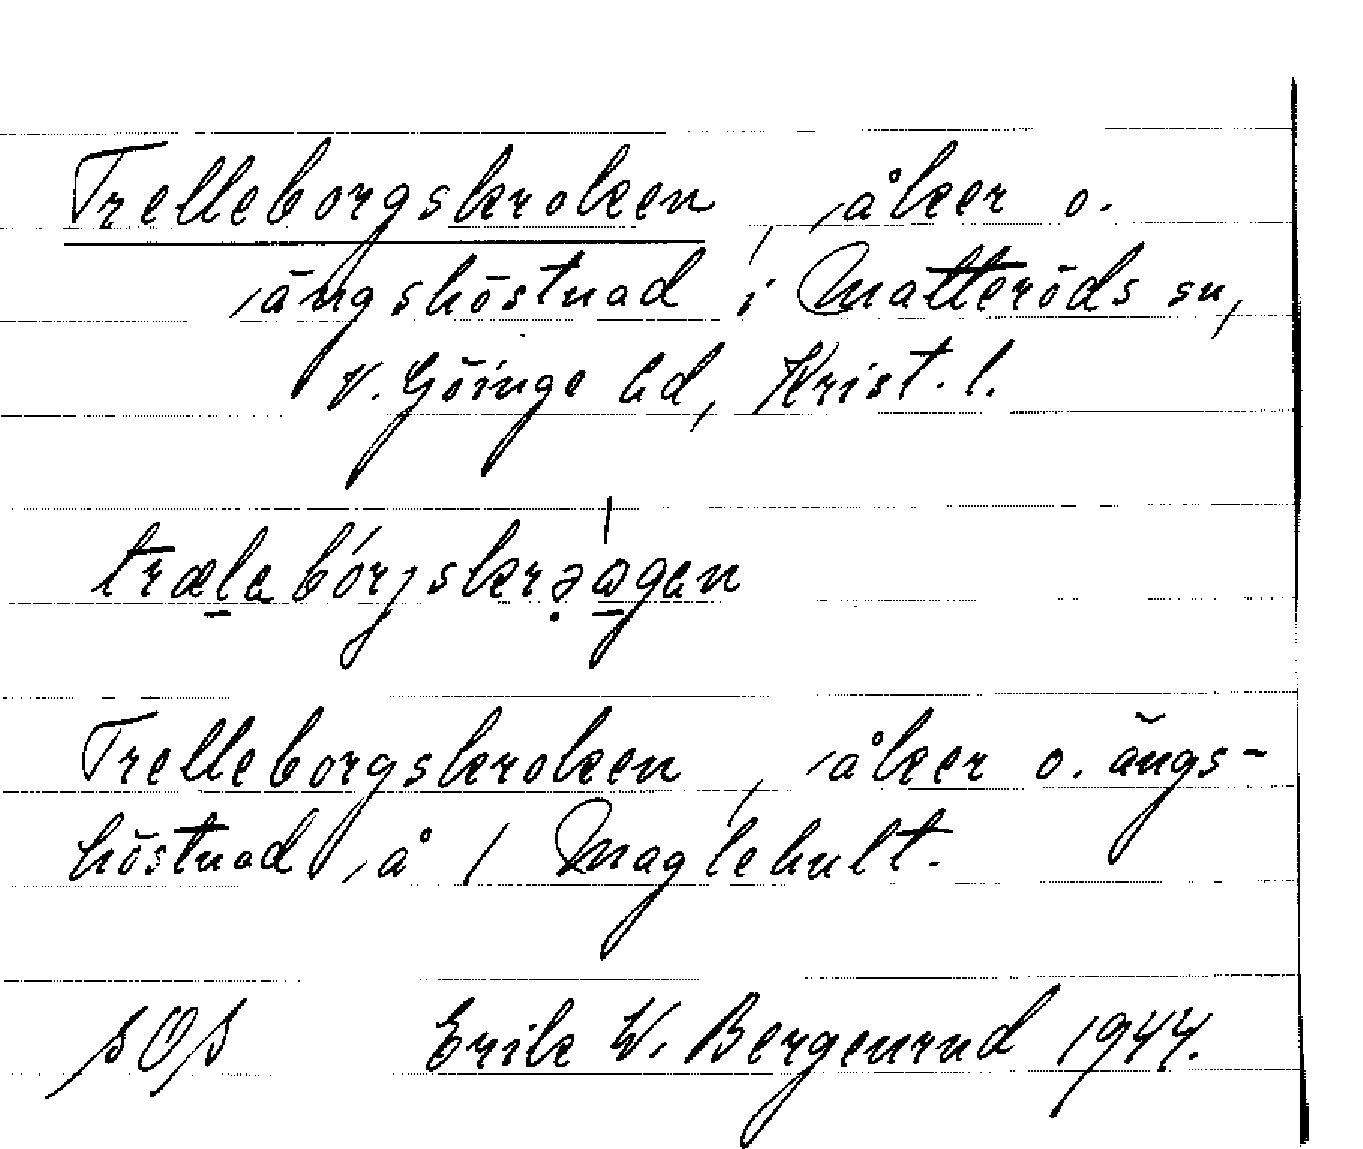 Trelleborgskroken, åker o.
ängshöstnad i Matteröds sn,
V. Göinge hd, Krist. l.
trælabórjskrəågan
Trelleborgskroken, åker o. ängs-
höstnad å 1 Maglehult.
SOS Erik W. Bergenrud 1944.